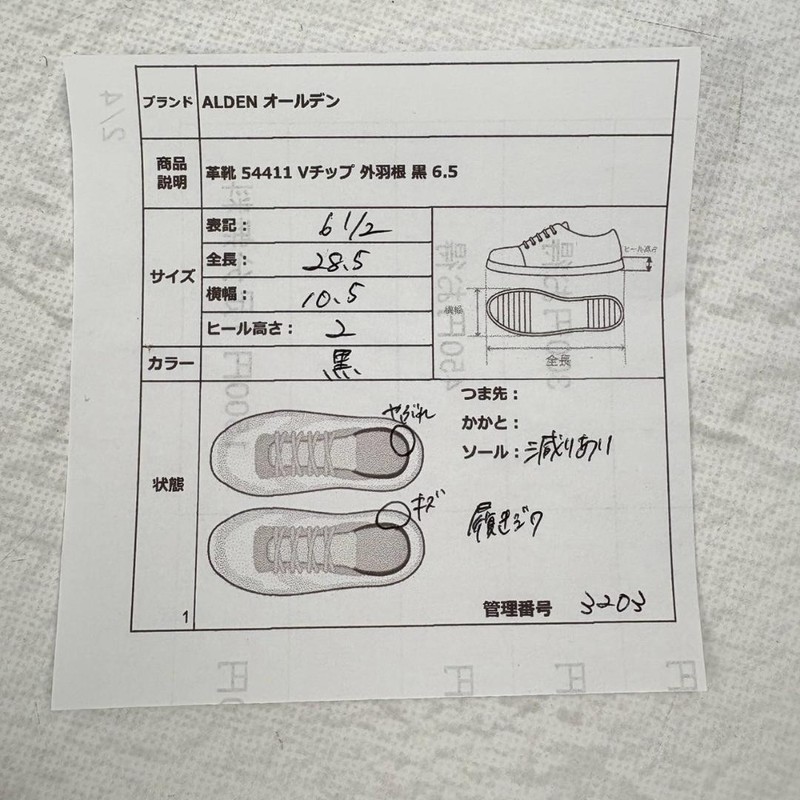 ブランド ALDEN オールデン
商品説明 革靴 54411 Vチップ 外羽根 黒 6.5
サイズ
表記： 6 1/2
全長： 28.5
横幅： 10.5
ヒール高さ： 2
ヒール高さ
横幅
全長
カラー 黒
状態
やぶれ
キズ
つま先：
かかと：
ソール：減りあり
履きジワ
1
管理番号 3203
2/4
450円
300円
100円
円
円
円
円